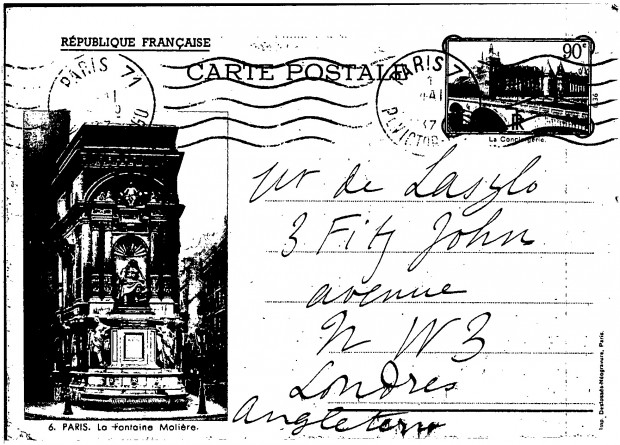 RÉPUBLIQUE FRANÇAISE
CARTE POSTALE
PARIS 71
PARIS 71
MAI
37
PL. VICTOR
90c
RF
La Conciergerie.
Mr de Laszlo
3 Fitz John
avenue
N W3
Londres
Angleterre
6. PARIS. La Fontaine Molière.